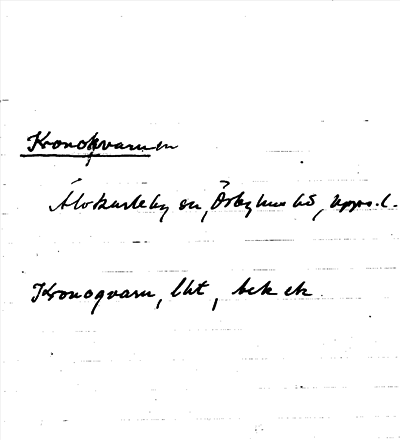 Kronokvarnen
Älvkarleby sn, Örbyhus hd, Upps. l.
Kronoqvarn, lht, bek ek